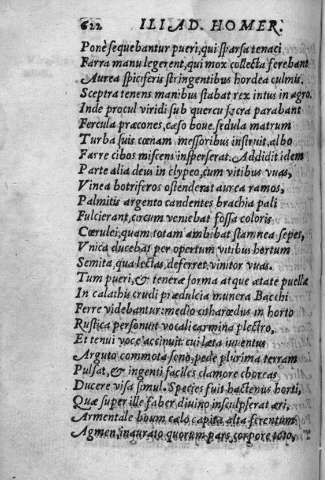 622 ILIAD. HOMER.
Ponè sequebantur pueri, qui sparsa tenaci
Farra manu legerent, qui mox collecta ferebant
Aurea spiciferis stringentibus hordea culmis.
Sceptra tenens manibus stabat rex intus in agro.
Inde procul viridi sub quercu sacra parabant
Fercula præcones, cæso boue. sedula matrum
Turba suis cœnam messoribus instruit, albo
Farre cibos miscens insperserat. Addidit idem
Parte alia deus in clypeo, cum vitibus vuas,
Vinea botriferos ostenderat aurea ramos,
Palmitis argento candentes brachia pali
Fulcierant, circum veniebat fossa coloris
Cœrulei, quam totam ambibat stamnea sepes,
Vnica ducebat per opertum vitibus hortum
Semita, qua lectas, deferret vinitor vuas.
Tum pueri, & tenera forma atque ætate puellæ
In calathis crudi prædulcia munera Bacchi
Ferre videbantur: medio citharœdus in horto
Rustica personuit vocali carmina plectro,
Et tenui voce accinuit. cui læta iuuentus
Arguto commota sono, pede plurima terram
Pulsat, & ingenti faciles clamore choreas
Ducere visa simul. Species fuit hactenus horti,
Quæ super ille faber diuino insculpserat æri,
Armentale boum calo, capita alta ferentum
Agmen, inaurato quorum pars corpore toto,